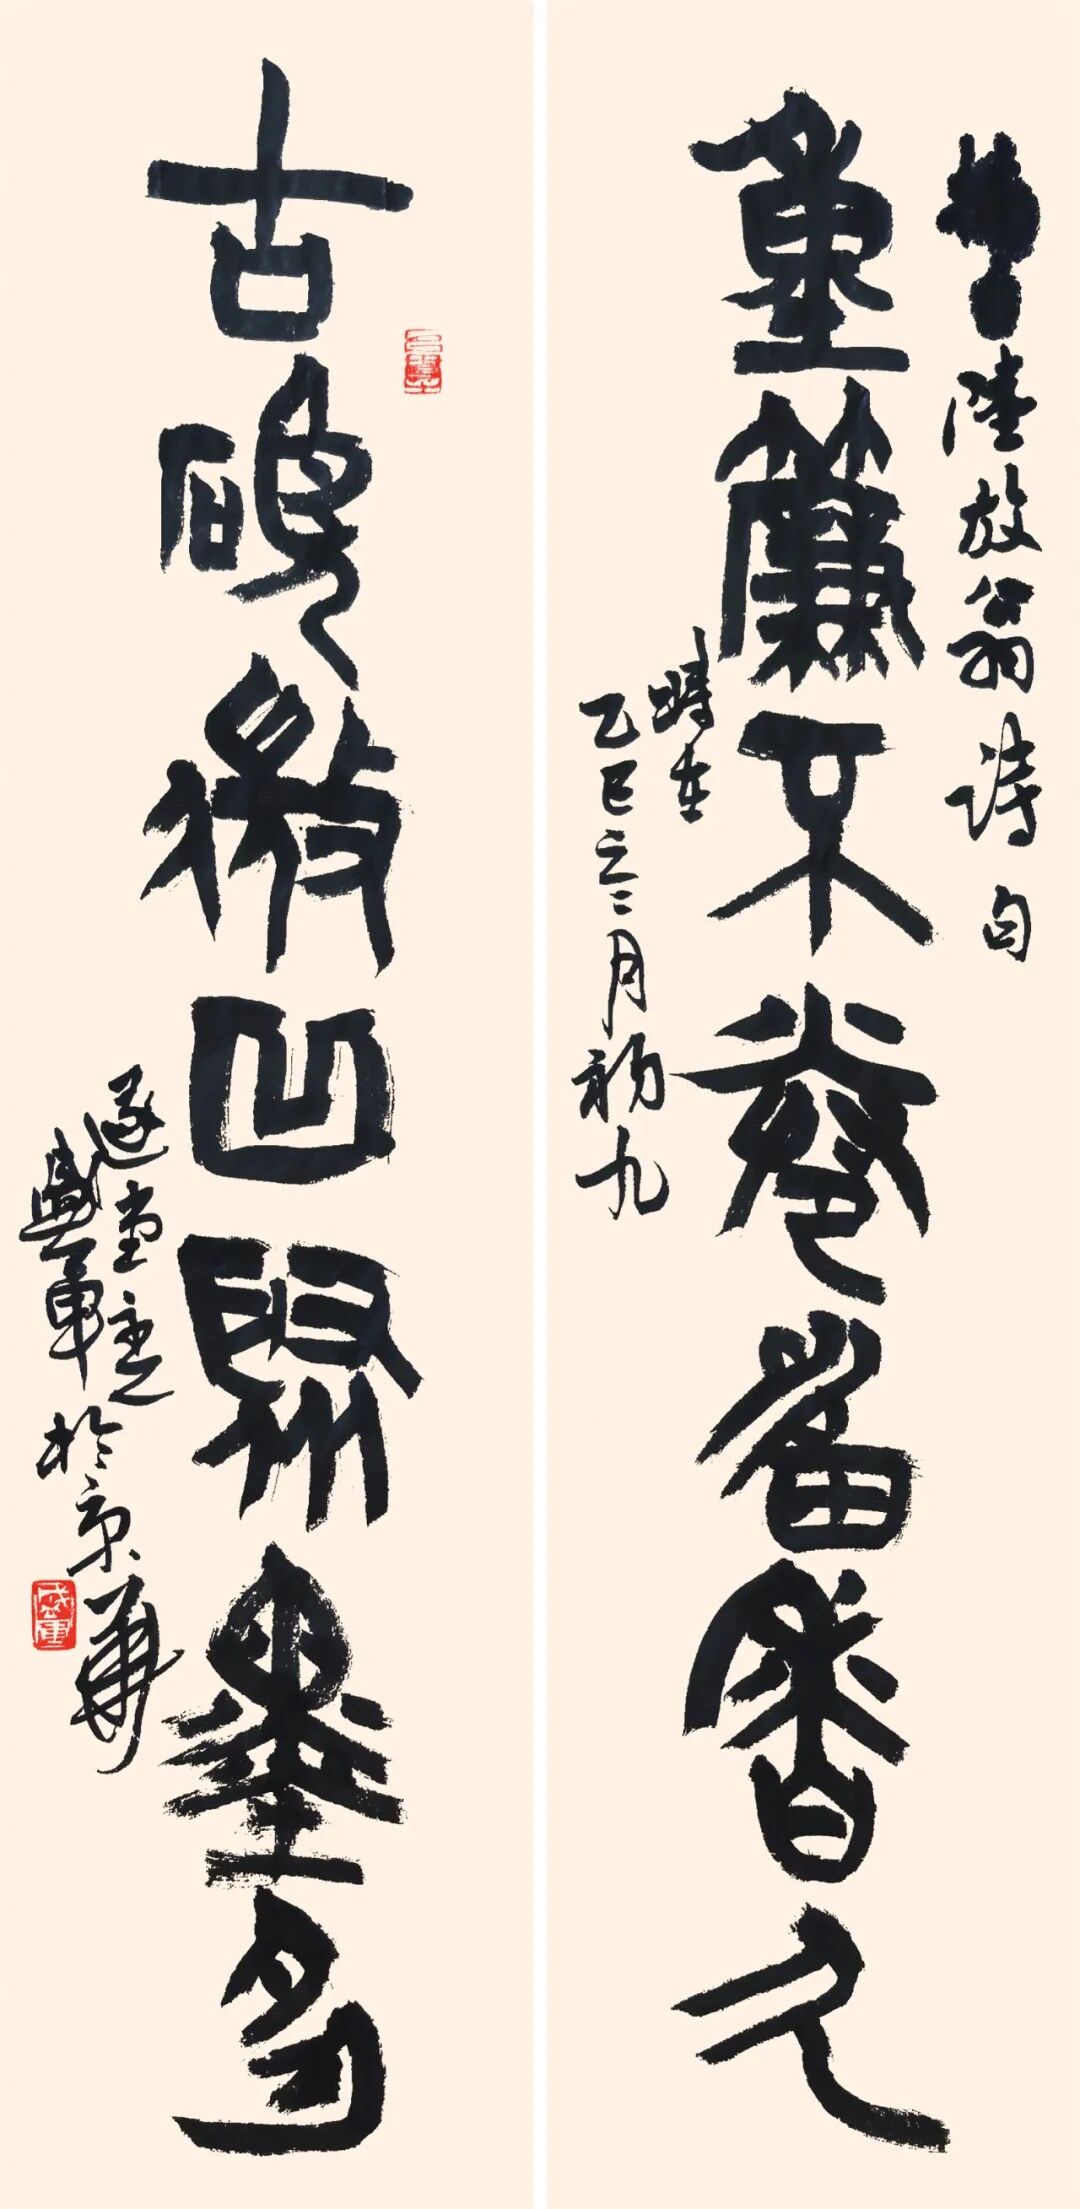 書陸放翁詩句
重簾不卷留香久
時在
乙巳之二月初九
古硯微凹聚墨多
遂堂主
盛軍於京華
盛軍